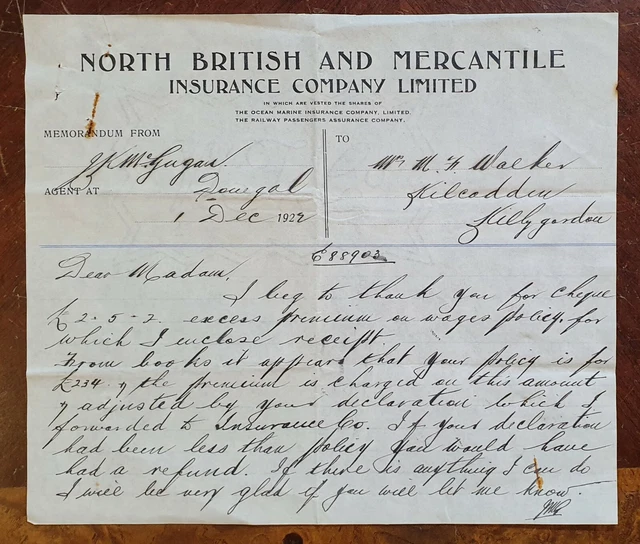 NORTH BRITISH AND MERCANTILE
INSURANCE COMPANY LIMITED
IN WHICH ARE VESTED THE SHARES OF
THE OCEAN MARINE INSURANCE COMPANY, LIMITED.
THE RAILWAY PASSENGERS ASSURANCE COMPANY.
MEMORANDUM FROM
J McGugan.
AGENT AT Donegal
1 Dec 1922
TO
Mrs M. F. Walker
Kilcadden
Killygordon
E88902
Dear Madam,
I beg to thank you for cheque
£2-5-2 excess premium on wages policy, for
which I enclose receipt.
From books it appears that your policy is for
£234 & the premium is charged on this amount
& adjusted by your declaration which I
forwarded to Insurance Co. If your declaration
had been less than policy you would have
had a refund. If there is anything I can do
I will be very glad if you will let me know.